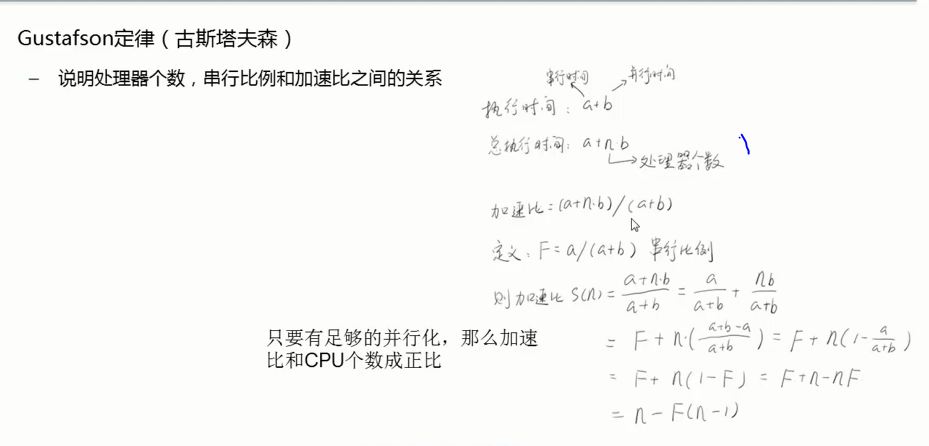 Gustafson定律（古斯塔夫森）
– 说明处理器个数，串行比例和加速比之间的关系
串行时间 并行时间
执行时间：a+b
总执行时间：a+nb
处理器个数
加速比=(a+n·b)/(a+b)
定义：F=a/(a+b) 串行比例
则加速比 S(n)=\frac{a+n·b}{a+b}=\frac{a}{a+b}+\frac{nb}{a+b}
= F+n·(\frac{a+b-a}{a+b})=F+n(1-\frac{a}{a+b})
= F+n(1-F)=F+n-nF
= n-F(n-1)
只要有足够的并行化，那么加速
比和CPU个数成正比